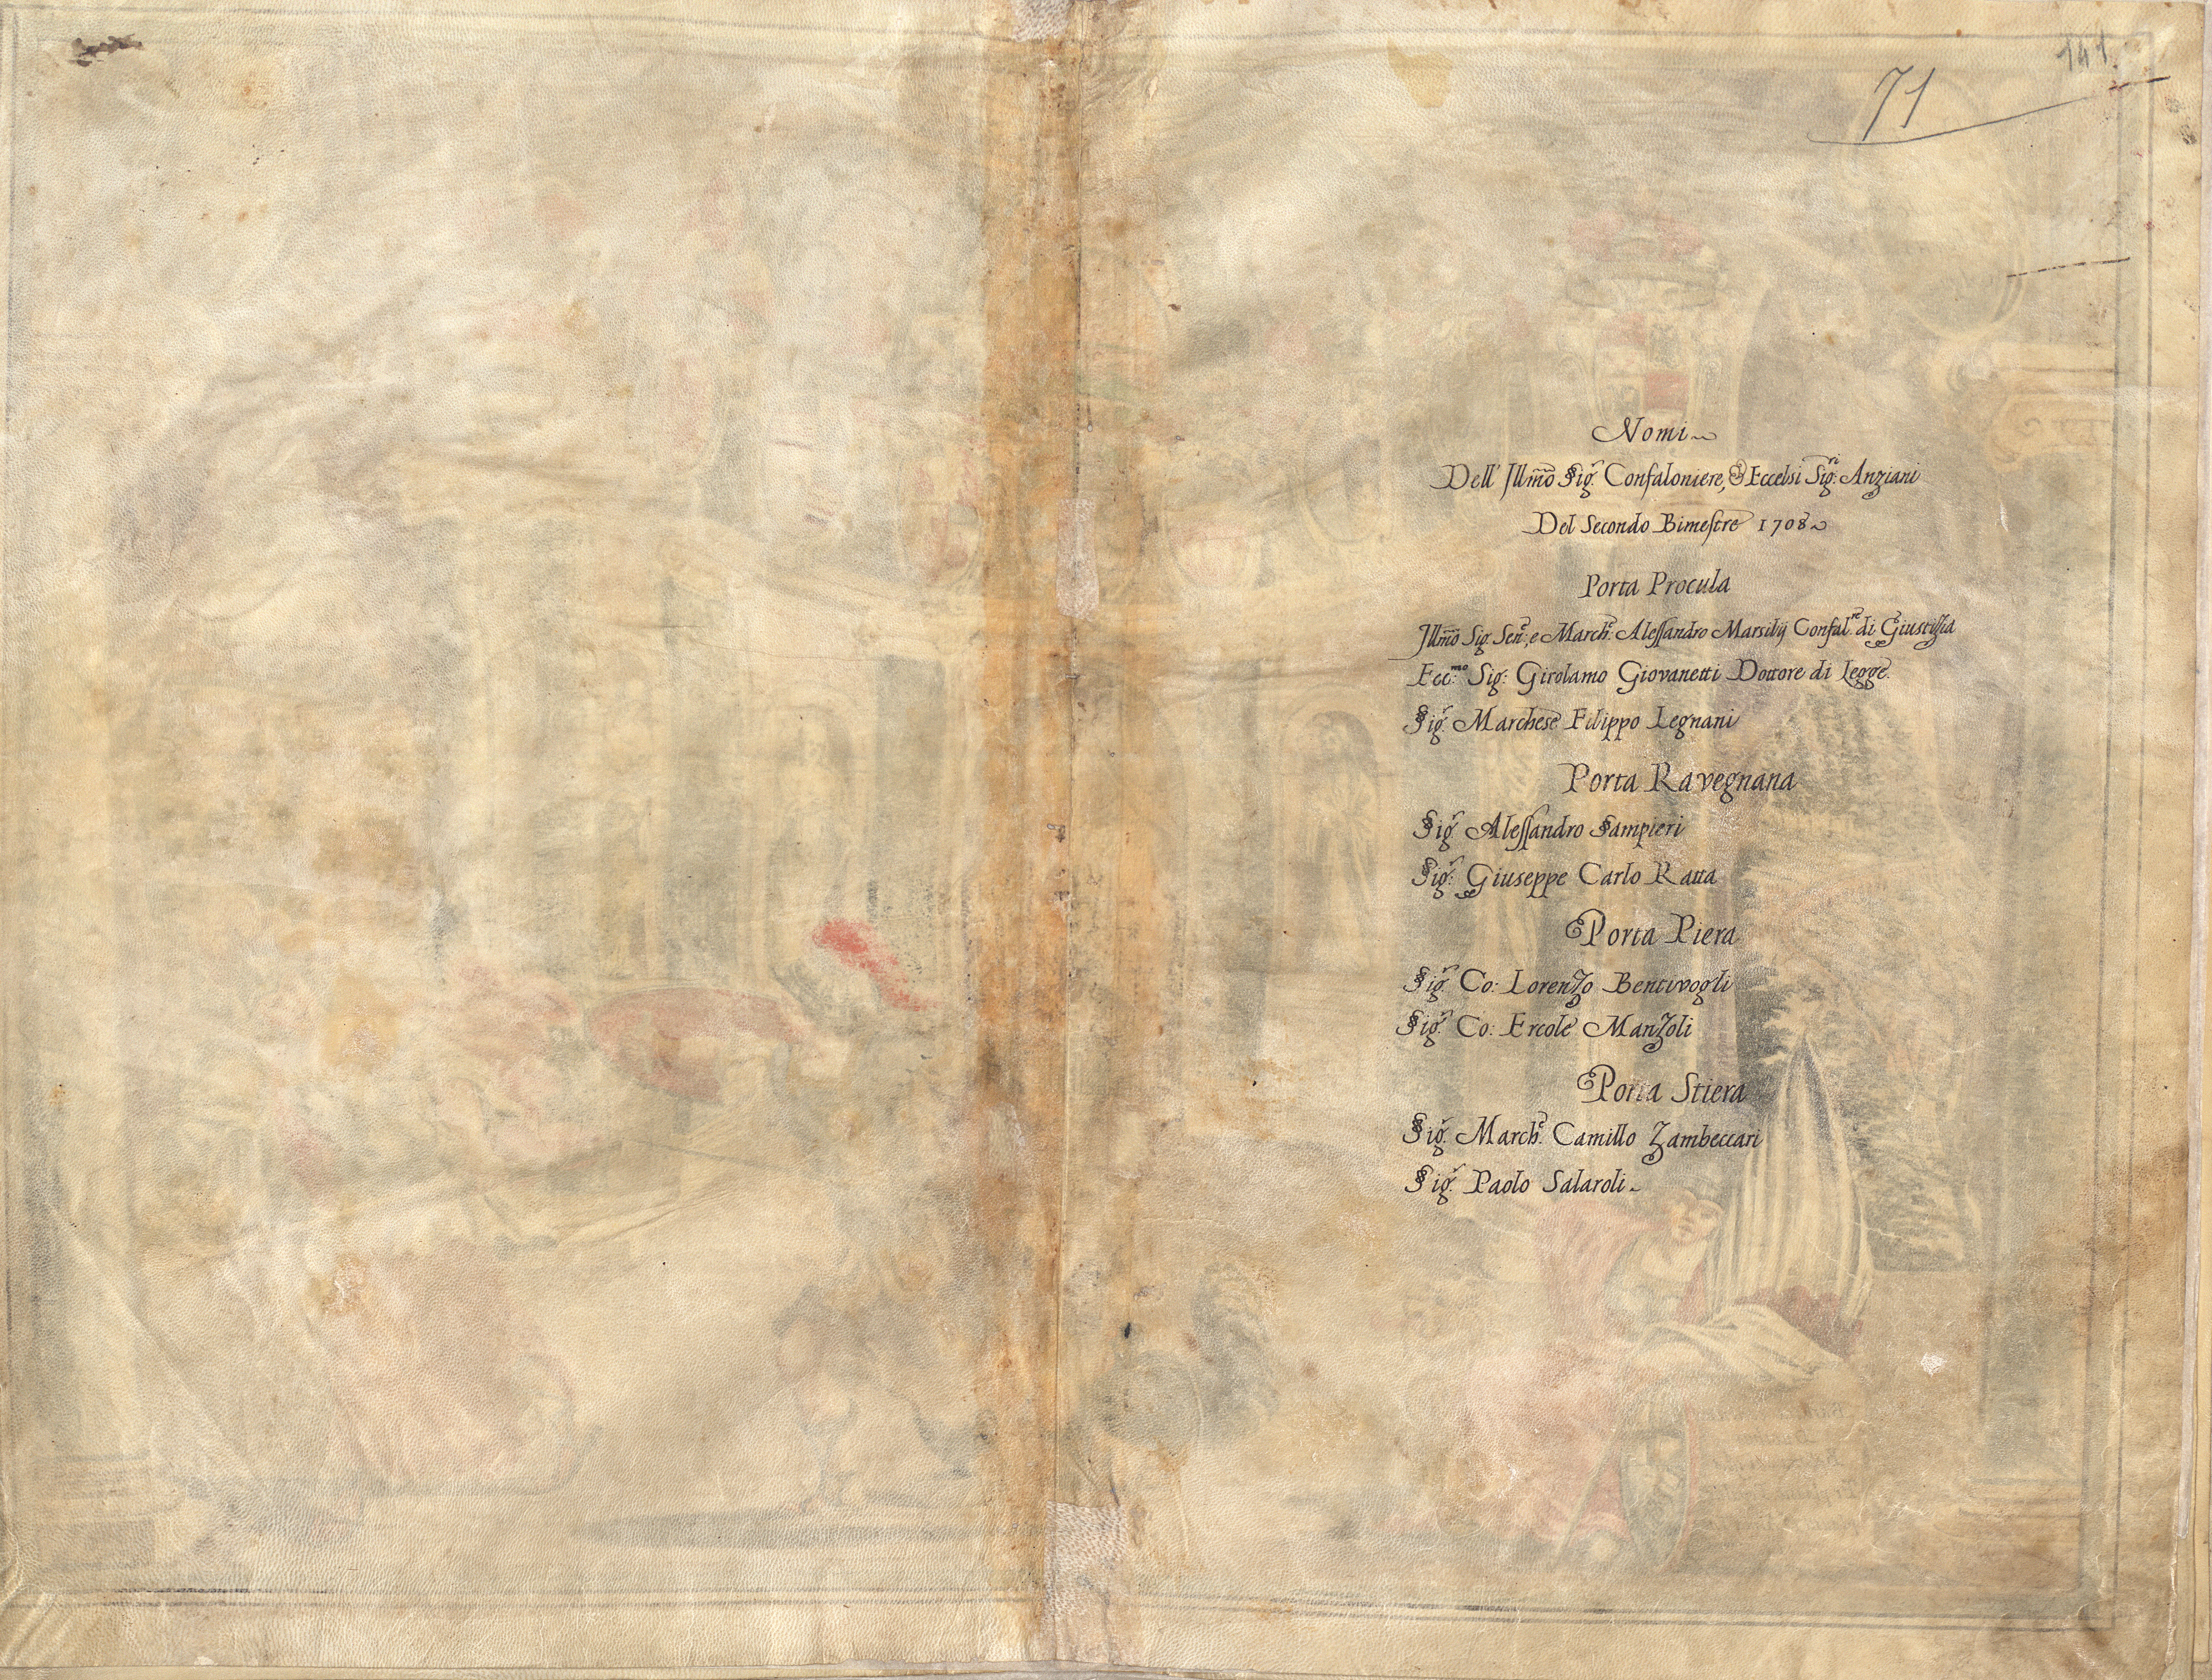 141
71
Nomi
Dell' Illmo Sigr. Confaloniere, & Eccelsi Sigri: Anziani
Del Secondo Bimestre 1708
Porta Procula
Illmo Sig. Senre, e Marche. Alessandro Marsilij Confalre. di Giustizia
Ecc:mo Sig: Girolamo Giovanetti Dottore di Legge.
Sigr. Marchese Filippo Legnani
Porta Ravegnana
Sigr. Alessandro Sampieri
Sigr: Giuseppe Carlo Ratta
Porta Piera
Sigr. Co: Lorenzo Bentivogli
Sigr. Co: Ercole Manzoli
Porta Stiera
Sigr. Marche. Camillo Zambeccari
Sigr. Paolo Salaroli